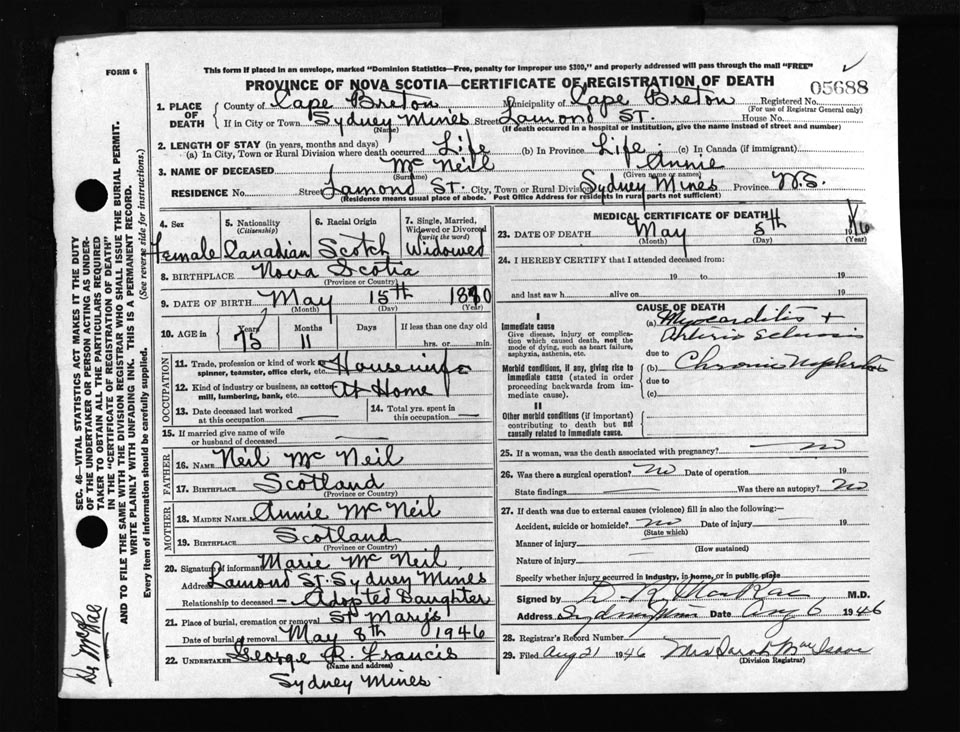 FORM 6
This form if placed in an envelope, marked "Dominion Statistics—Free, penalty for improper use $300," and properly addressed will pass through the mail "FREE"
PROVINCE OF NOVA SCOTIA—CERTIFICATE OF REGISTRATION OF DEATH
05688
1. PLACE OF DEATH County of Cape Breton Municipality of Cape Breton Registered No.
(For use of Registrar General only)
If in City or Town Sydney Mines Street Lamond ST. House No.
(Name) (If death occurred in a hospital or institution, give the name instead of street and number)
2. LENGTH OF STAY (in years, months and days)
(a) In City, Town or Rural Division where death occurred Life (b) In Province Life (c) In Canada (if immigrant)
3. NAME OF DECEASED Mc Neil Annie
(Surname) (Given name or names)
RESIDENCE No. Street Lamond ST. City, Town or Rural Division Sydney Mines Province N.S.
(Residence means usual place of abode. Post Office Address for residents in rural parts not sufficient.)
4. Sex 5. Nationality (Citizenship) 6. Racial Origin 7. Single, Married, Widowed or Divorced (write the word)
Female Canadian Scotch Widowed
8. BIRTHPLACE Nova Scotia
(Province or Country)
9. DATE OF BIRTH May 15th
(Month) (Day) (Year)
10. AGE in Years Months Days If less than one day old
75 11 hrs. or min.
OCCUPATION
11. Trade, profession or kind of work as spinner, teamster, office clerk, etc. Housewife
12. Kind of industry or business, as cotton mill, lumbering, bank, etc. At Home
13. Date deceased last worked at this occupation —
14. Total yrs. spent in this occupation —
15. If married give name of wife or husband of deceased —
FATHER
16. NAME Neil Mc Neil
17. BIRTHPLACE Scotland
(Province or Country)
MOTHER
18. MAIDEN NAME Annie Mc Neil
19. BIRTHPLACE Scotland
(Province or Country)
20. Signature of informant Marie Mc Neil
Address Lamond St. Sydney Mines
Relationship to deceased — Adopted Daughter
21. Place of burial, cremation or removal St Mary's
Date of burial or removal May 8th 1946
22. UNDERTAKER George R. Francis
(Name and address)
Sydney Mines.
MEDICAL CERTIFICATE OF DEATH
23. DATE OF DEATH May 5th
(Month) (Day) (Year)
24. I HEREBY CERTIFY that I attended deceased from:
19 to 19
and last saw h alive on 19
CAUSE OF DEATH
I
Immediate cause
Give disease, injury or complication which caused death, not the mode of dying, such as heart failure, asphyxia, asthenia, etc.
(a) Myocarditis +
Arterio Sclerosis
due to
Morbid conditions, if any, giving rise to immediate cause (stated in order proceeding backwards from immediate cause).
(b) Chronic Nephritis
due to
(c)
II
Other morbid conditions (if important) contributing to death but not causally related to immediate cause.
25. If a woman, was the death associated with pregnancy? — no
26. Was there a surgical operation? no Date of operation 19
State findings — Was there an autopsy? no
27. If death was due to external causes (violence) fill in also the following:—
Accident, suicide or homicide? no Date of injury — 19
(State which)
Manner of injury —
(How sustained)
Nature of injury
Specify whether injury occurred in industry, in home, or in public place
Signed by D. R. MacRae M.D.
Address Sydney Mines Date Aug 6 1946
28. Registrar's Record Number
29. Filed Aug 21 1946 Mrs Sarah MacIsaac
(Division Registrar)
SEC. 46—VITAL STATISTICS ACT MAKES IT THE DUTY OF THE UNDERTAKER OR PERSON ACTING AS UNDERTAKER TO OBTAIN ALL THE PARTICULARS REQUIRED IN THE "CERTIFICATE OF REGISTRATION OF DEATH"
AND TO FILE THE SAME WITH THE DIVISION REGISTRAR WHO SHALL ISSUE THE BURIAL PERMIT.
WRITE PLAINLY WITH UNFADING INK. THIS IS A PERMANENT RECORD.
Every item of information should be carefully supplied. (See reverse side for instructions.)
Dr McRae